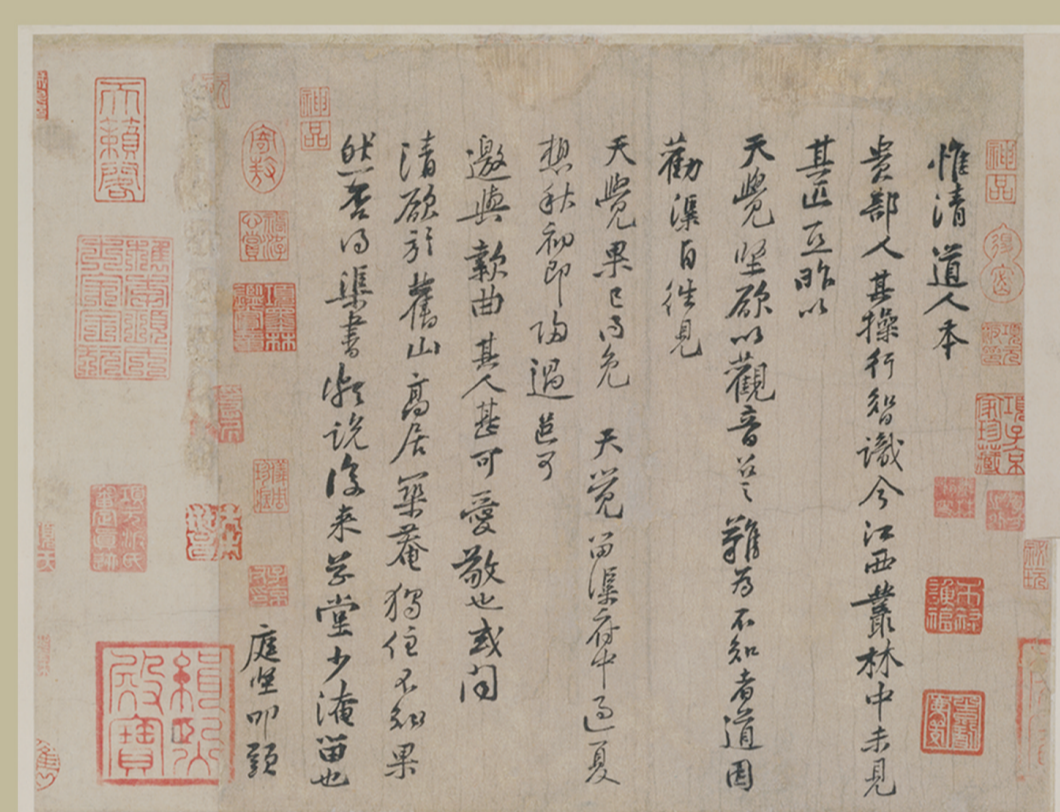 神品
項子京家珍藏
惟清道人本
貴部人其操行智識今江西叢林中未見
其匹亞昨以
天覺堅欲以觀音召之難為不知者道因
勸渠自往見
天覺果已得免 天覺留渠府中過夏
想秋初即歸過邑可
邀與款曲其人甚可愛敬也或聞
清欲於舊山高居築菴獨住不知果
然否得渠書頻說後來草堂少淹留也
庭堅叩頭
神品
寄敖
項墨林鑑賞章
天籟閣
緝熙殿寶